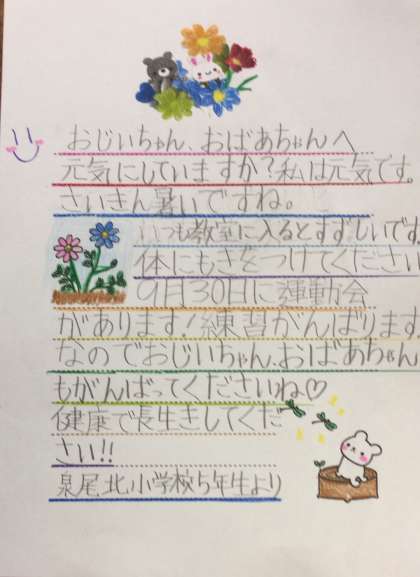 おじいちゃん、おばあちゃんへ
元気にしていますか?私は元気です。
さいきん暑いですね。
いつも教室に入るとすずしいです。
体にもきをつけてください
9月30日に運動会
があります!練習がんばります
なのでおじいちゃん、おばあちゃん
もがんばってくださいね♡
健康で長生きしてくだ
さい!!
泉尾北小学校5年生より